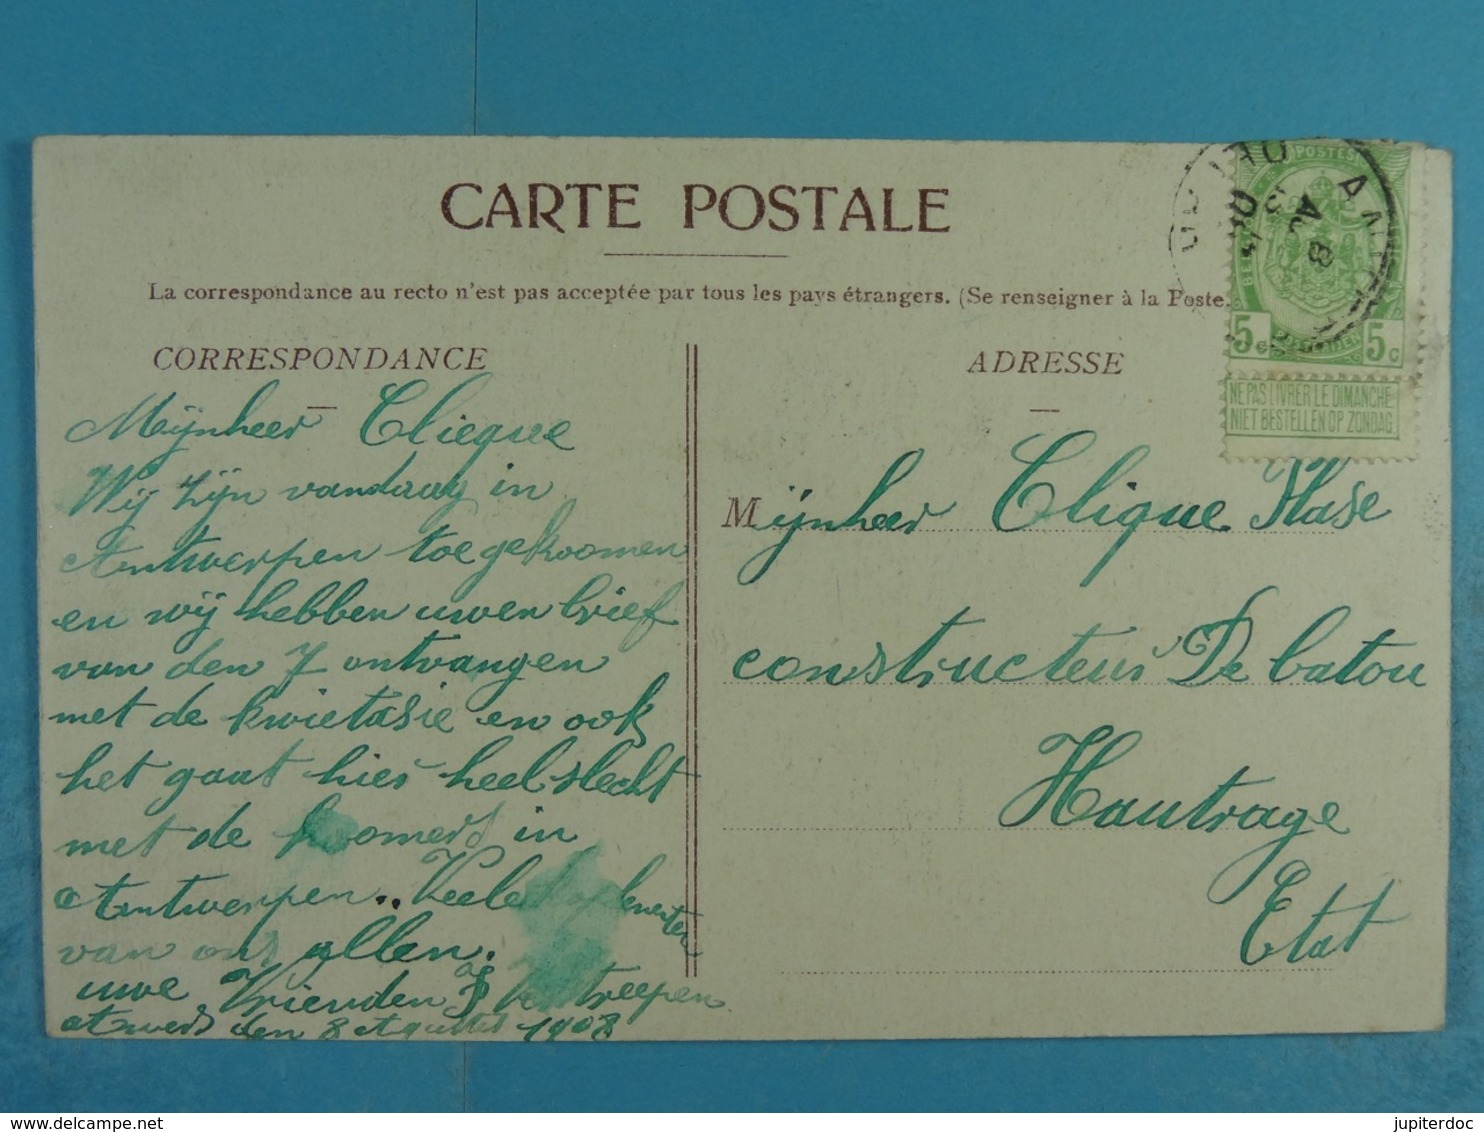 CARTE POSTALE
La correspondance au recto n'est pas acceptée par tous les pays étrangers. (Se renseigner à la Poste.
CORRESPONDANCE
Mijnheer Clieque
Wij zijn vandaag in
Antwerpen toegekoomen
en wij hebben uwen brief
van den 7 ontvangen
met de kwietasie en ook
het gaat hier heel slecht
met de in
Antwerpen.. Veele
van ons allen.
uwe Vrienden
Antwers den 8 1908
ADRESSE
Mijnheer Clique Plase
constructeur De batou
Hautrage
Etat
POSTES
5c 5c
NE PAS LIVRER LE DIMANCHE
NIET BESTELLEN OP ZONDAG
8
AU
13
delcampe.net
jupiterdoc